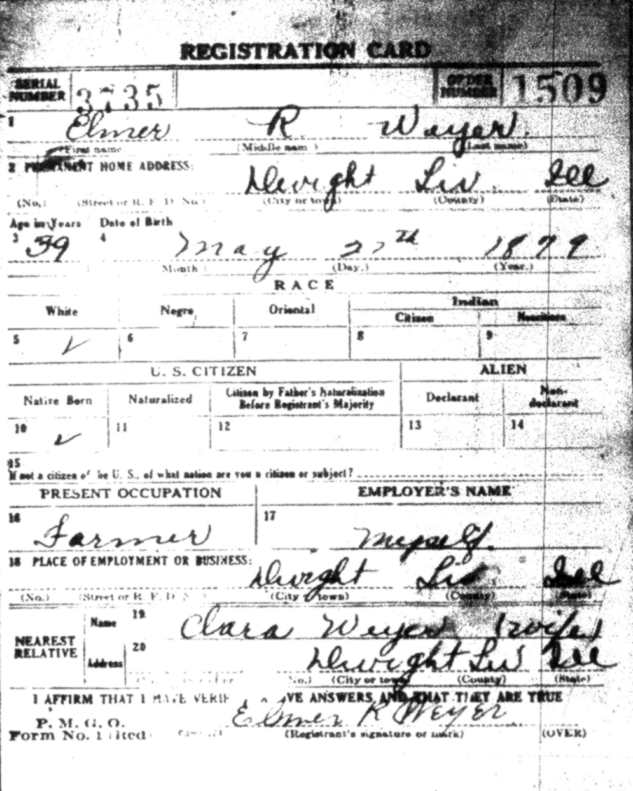 REGISTRATION CARD
SERIAL NUMBER 3735 ORDER NUMBER 1509
1 Elmer R Weyer.
(First name) (Middle name) (Last name)
2 PERMANENT HOME ADDRESS:
Dwight Liv. Ill
(No.) (Street or R. F. D. No.) (City or town) (County) (State)
Age in Years Date of Birth
3 39 4 May 27th 1879
(Month) (Day.) (Year.)
RACE
White Negro Oriental Indian
Citizen Noncitizen
5 ✓ 6 7 8 9
U. S. CITIZEN ALIEN
Native Born Naturalized Citizen by Father's Naturalization Before Registrant's Majority Declarant Non-declarant
10 ✓ 11 12 13 14
15
If not a citizen of the U. S., of what nation are you a citizen or subject?
PRESENT OCCUPATION EMPLOYER'S NAME
16 Farmer 17 Myself.
18 PLACE OF EMPLOYMENT OR BUSINESS:
Dwight Liv Ill
(No.) (Street or R. F. D. No.) (City or town) (County) (State)
NEAREST RELATIVE
Name 19 Clara Weyer (wife)
Address 20 Dwight Liv Ill
No.) (City or town) (County) (State)
I AFFIRM THAT I HAVE VERIFIED ABOVE ANSWERS AND THAT THEY ARE TRUE
P. M. G. O.
Form No. 1 Elmer R Weyer.
(Registrant's signature or mark) (OVER)